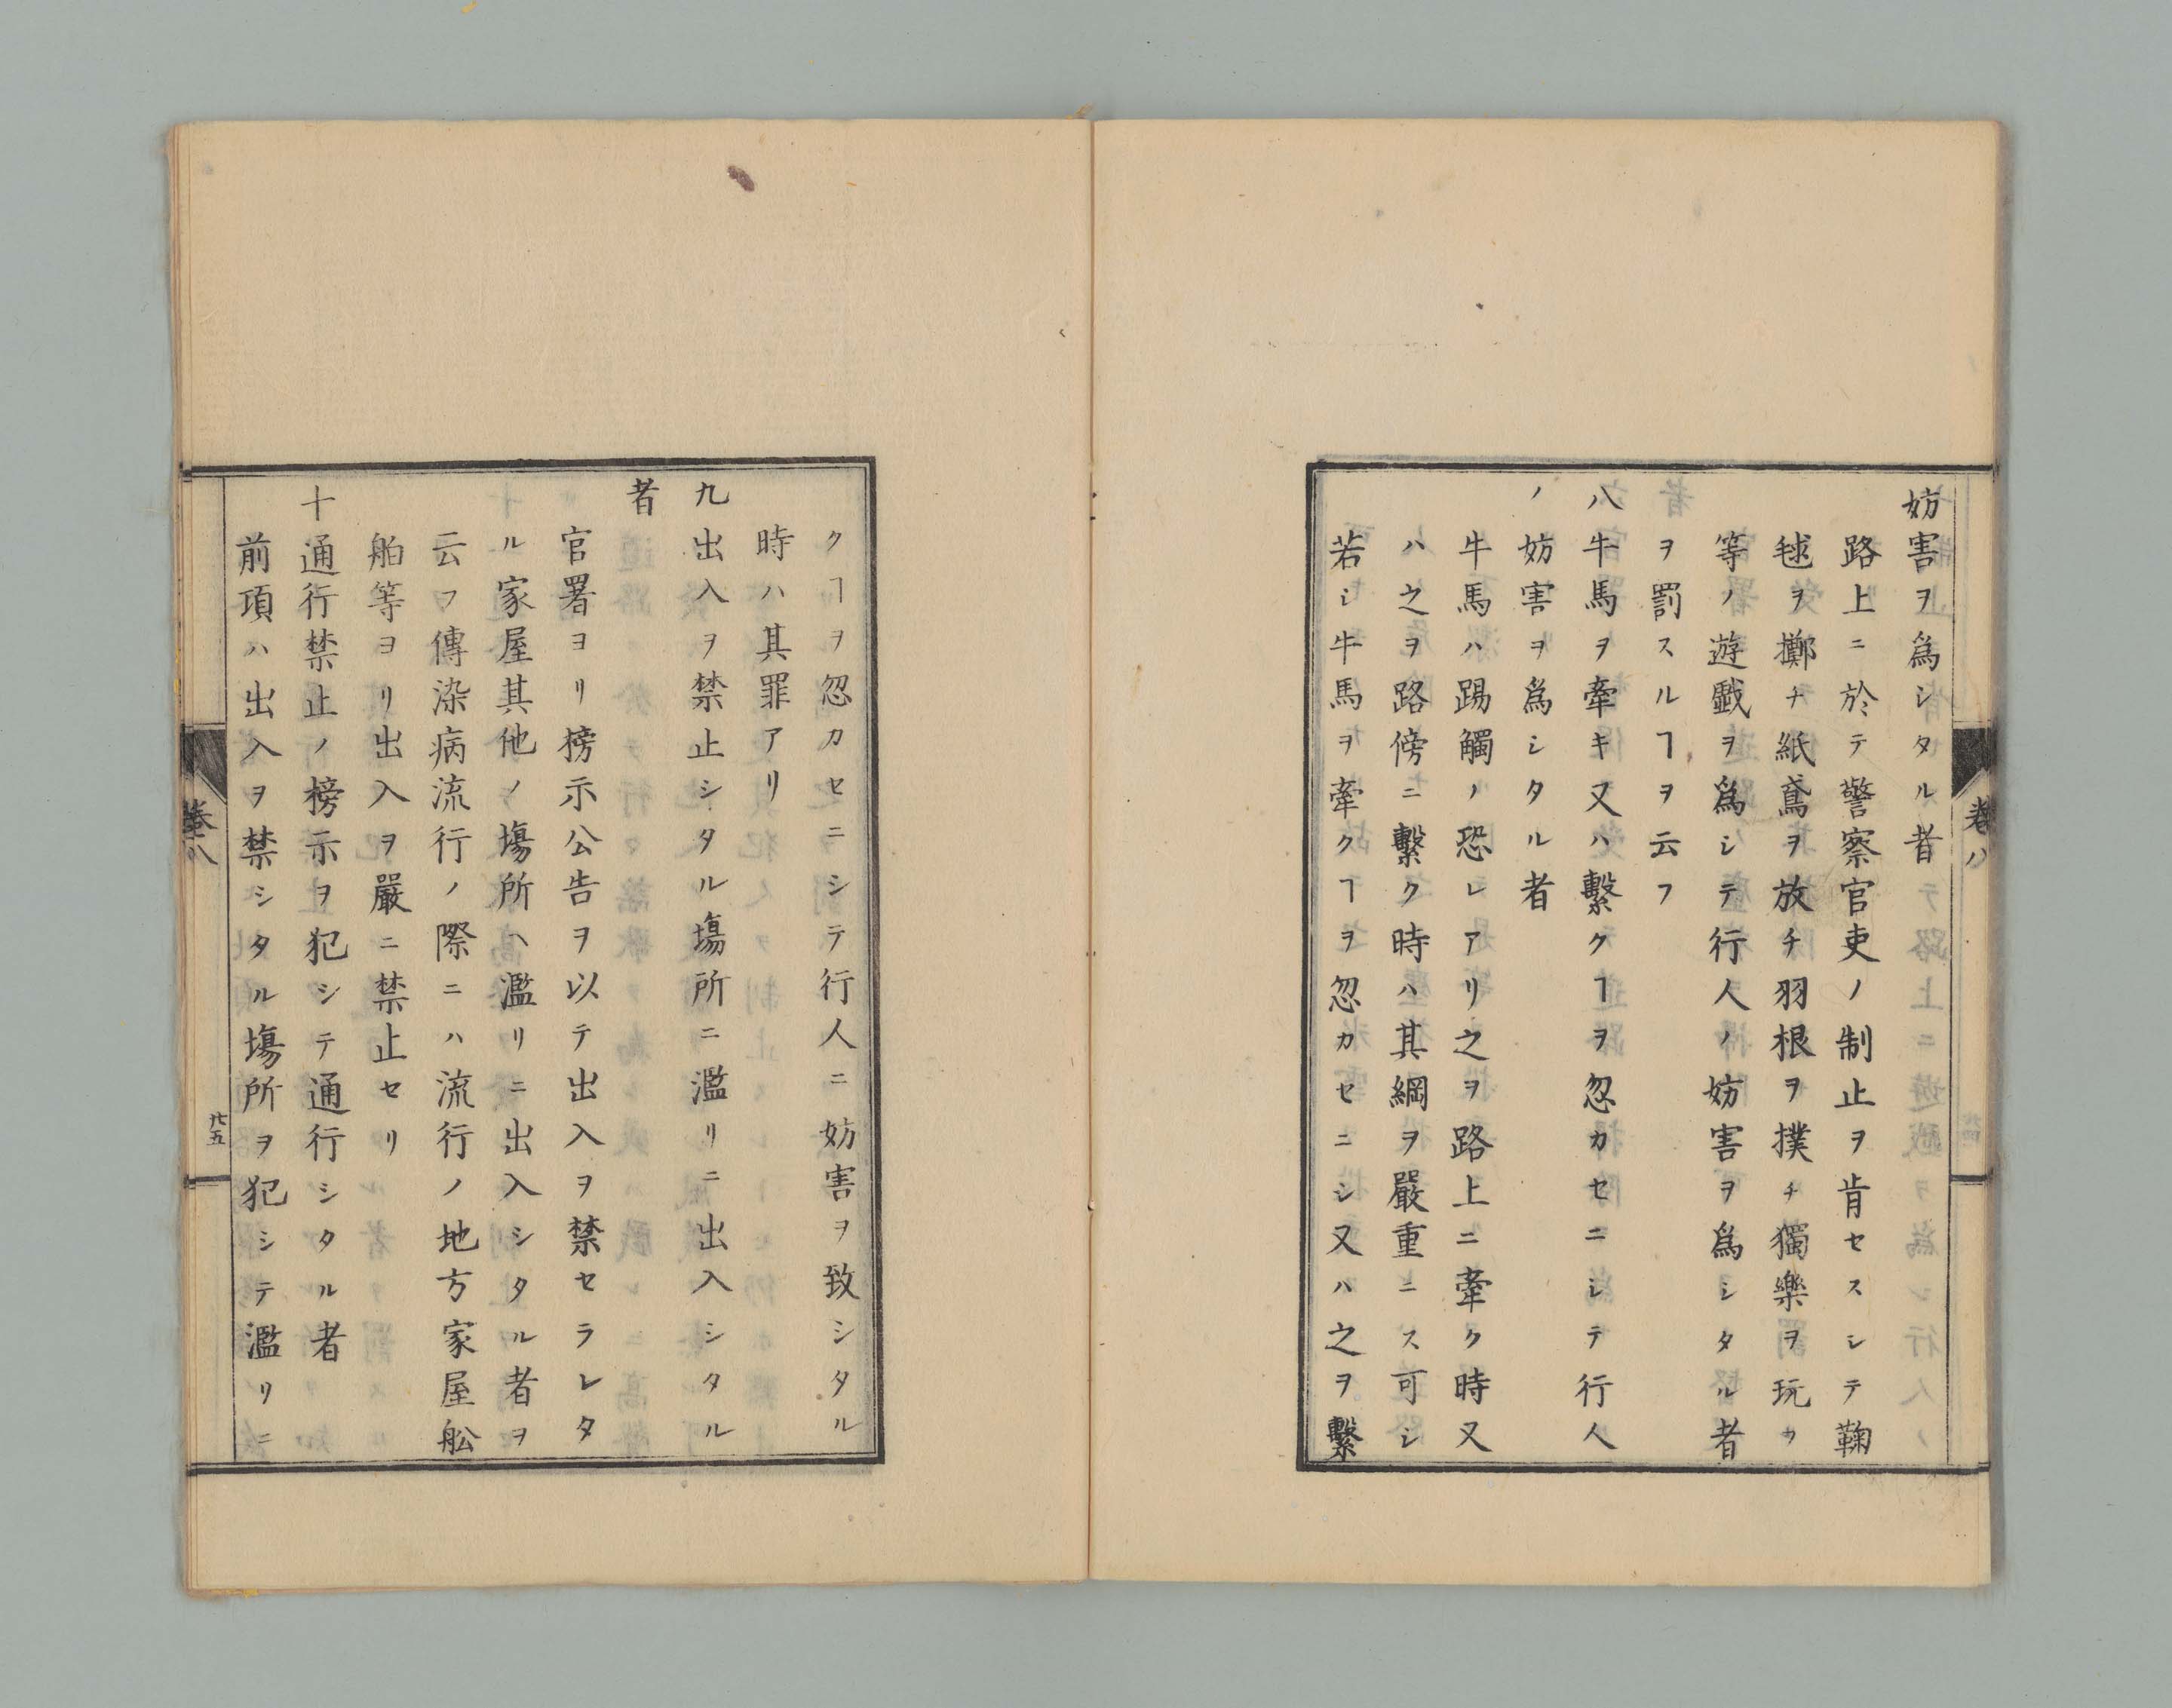 妨害ヲ爲シタル者
路上ニ於テ警察官吏ノ制止ヲ肯セスシテ鞠
毬ヲ擲チ紙鳶ヲ放チ羽根ヲ撲チ獨樂ヲ玩フ
等ノ遊戯ヲ爲シテ行人ノ妨害ヲ爲シタル者
ヲ罰スルヿヲ云フ
八牛馬ヲ牽キ又ハ繫クヿヲ忽カセニシテ行人
ノ妨害ヲ爲シタル者
牛馬ハ踢觸ノ恐レアリ之ヲ路上ニ牽ク時又
ハ之ヲ路傍ニ繫ク時ハ其綱ヲ嚴重ニス可シ
若シ牛馬ヲ牽クヿヲ忽カセニシ又ハ之ヲ繫
卷八
クヿヲ忽カセニシテ行人ニ妨害ヲ致シタル
時ハ其罪アリ
九出入ヲ禁止シタル塲所ニ濫リニ出入シタル
者
官署ヨリ榜示公告ヲ以テ出入ヲ禁セラレタ
ル家屋其他ノ塲所ヘ濫リニ出入シタル者ヲ
云フ傳染病流行ノ際ニハ流行ノ地方家屋舩
舶等ヨリ出入ヲ嚴ニ禁止セリ
十通行禁止ノ榜示ヲ犯シテ通行シタル者
前項ハ出入ヲ禁シタル塲所ヲ犯シテ濫リニ
卷八
廿五